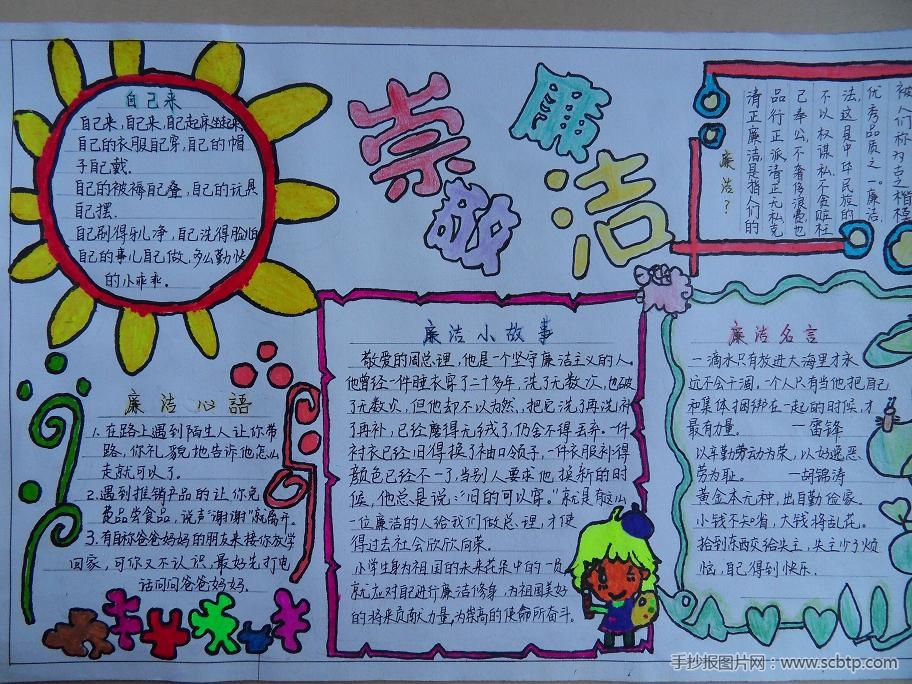 崇廉
敬洁
自己来
自己来,自己来,自己起床坐起来,
自己的衣服自己穿,自己的帽
子自己戴.
自己的被褥自己叠,自己的玩具
自己摆.
自己刷得牙儿净,自己洗得脸儿白
自己的事儿自己做.多么勤快
的小乖乖.
廉洁?
清正廉洁,是指人们的
品行正派,清正无私,克
己奉公,不奢侈浪费,也
不以权谋私,不贪赃枉
法,这是中华民族的
优秀品质之一。廉洁,
被人们称为百之楷模
廉洁心語
1.在路上遇到陌生人让你带
路,你礼貌地告诉他怎么
走就可以了.
2.遇到推销产品的让你免
费品尝食品,说声"谢谢"就离开.
3.有自称爸爸妈妈的朋友来接你放学
回家,可你又不认识,最好先打电
话问问爸爸妈妈.
廉洁小故事
敬爱的周总理,他是个坚守廉洁主义的人。
他曾经一件睡衣穿了二十多年,洗了无数次,也破
了无数次,但他却不以为然,把它洗了再洗补
了再补,已经磨得无绒了,仍舍不得丢弃。一件
衬衣已经旧得换了袖口领子,一件衣服补得
颜色已经不一了,当别人要求他换新的时
候,他总是说:"旧的可以穿。"就是有这么
一位廉洁的人给我们做总理,才使
得过去社会欣欣向荣。
小学生身为祖国的未来花朵中的一员
就应对自己进行廉洁修身,为祖国美好
的将来贡献力量,为崇高的使命所奋斗。
廉洁名言
一滴水只有放进大海里才永
远不会干涸,一个人只有当他把自己
和集体捆绑在一起的时候,才
最有力量。 —雷锋
以辛勤劳动为荣,以好逸恶
劳为耻。 —胡锦涛
黄金本无种,出自勤俭家。
小钱不知省,大钱将乱花。
拾到东西交给失主,失主少了烦
恼,自己得到快乐.
手抄报图片网:www.scbtp.com